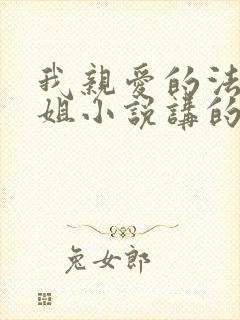 我親愛的法
姐小説講的
兔女郎